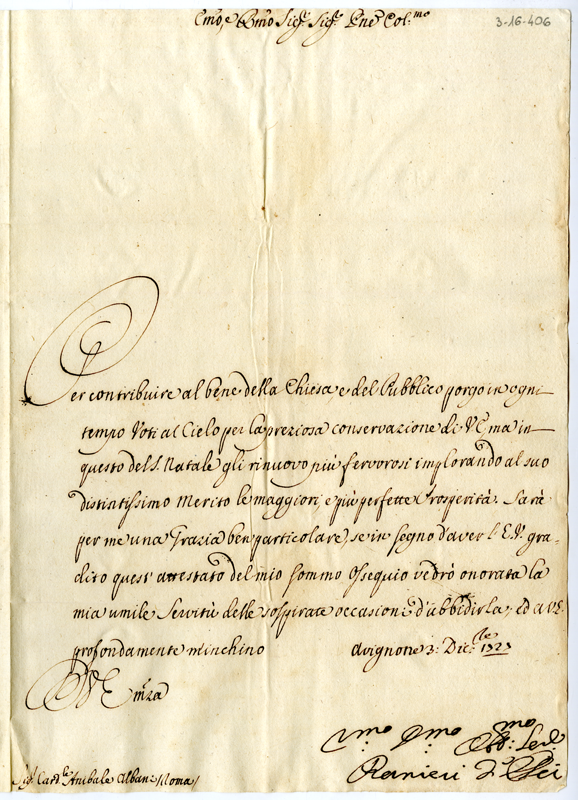 Emo, e Rmo Sigr. Sigr. Pne Col.mo
3-16-406
Per contribuire al bene della Chiesa e del Pubblico porgo in ogni
tempo Voti al Cielo per la preziosa conservazione di VE ma in
questo del S. Natale gli rinuovo più fervorosi implorando al suo
distintissimo Merito le maggiori, e più perfette Prosperità. Sarà
per me una Grazia ben particolare, se in segno d'aver l'E.V. gra-
dito quest' attestato del mio sommo Ossequio vedrò onorata la
mia umile Servitù delle sospirate occasioni d'abbidirla; ed a VE.
profondamente m'inchino
Avignone 3: Dic.
Di VE mza
Vmo Dmo Obb:mo Serl
Ranieri d'Elci
Sigr. Card.le Anibale Albani /Roma/